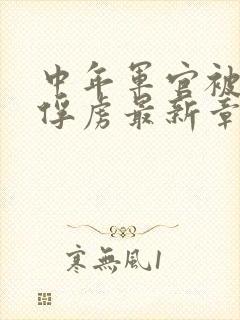 中年軍官被
俘虏最新章
寒無風1